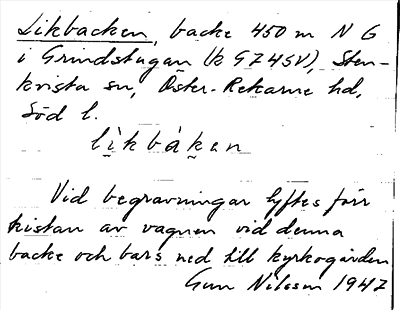 Likbacken, backe 450 m N G
i Grindstugan (k G7 4SV), Sten-
kvista sn, Öster-Rekarne hd,
Söd l.
likbaken
Vid begravningar lyftes förr
kistan av vagnen vid denna
backe och bars ned till kyrkogården
Gun Nilsson 1947